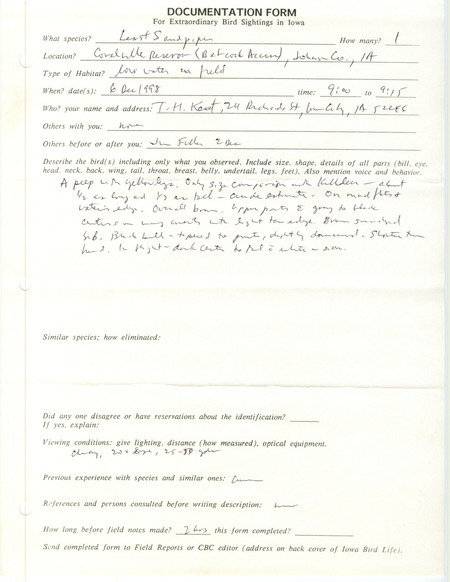 DOCUMENTATION FORM
For Extraordinary Bird Sightings in Iowa
What species? Least Sandpiper How many? 1
Location? Coralville Reservoir (Babcock Access), Johnson Co., IA
Type of Habitat? low water in field
When? date(s): 6 Dec 1998 time: 9:00 to 9:15
Who? your name and address: T. H. Kent, 211 Richards St, Iowa City, IA 52246
Others with you: none
Others before or after you: Jim Fuller 2 Dec
Describe the bird(s) including only what you observed. Include size, shape, details of all parts (bill, eye,
head, neck, back, wing, tail, throat, breast, belly, undertail, legs, feet). Also mention voice and behavior.
A peep with yellow legs. Only size comparison with Killdeer - about
1/2 as long and 1/3 as tall - crude estimate. On mud flat &
water's edge. Overall brown. Upperparts gray to black
centers on wing coverts with light tan edge. Brown
bib. Black bill - tapered to point, slightly downcurved. Shorter than
head. In flight - dark center to tail & white on
Similar species; how eliminated:
Did any one disagree or have reservations about the identification?
If yes, explain:
Viewing conditions: give lighting, distance (how measured), optical equipment.
cloudy, 20x scope, 25-50 yds
Previous experience with species and similar ones:
References and persons consulted before writing description:
How long before field notes made? 2 hrs this form completed?
Send completed form to Field Reports or CBC editor (address on back cover of Iowa Bird Life).